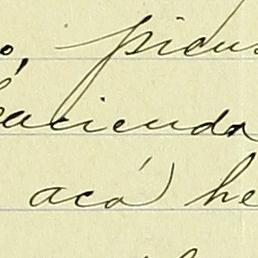 o, pien
hacienda
acá) he